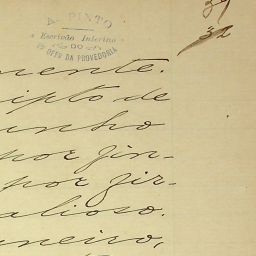 A. PINTO
Escrivão Interino
DO
1º OFº DA PROVEDORIA
32
mente.
ipto de
unho
por
por
alioso.
neiro,